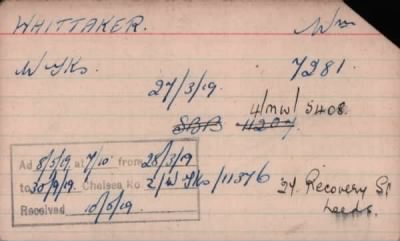 WHITTAKER. Wm
W Yks. 7281.
27/3/19.
4/MW/5408
SBB 11207
Ad 8/5/19 at 7/10 from 28/3/19
to 30/9/19. Chelsea No. 2/W Yks/11376
Received 10/5/19
24 Recovery St
Leeds.